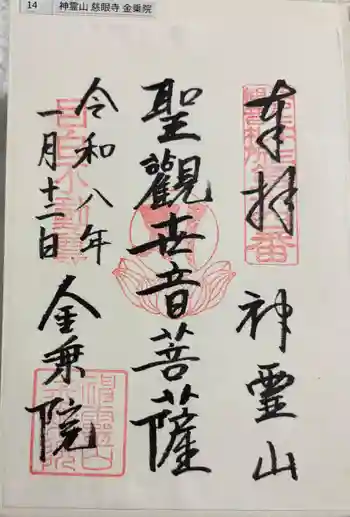 14 神霊山 慈眼寺 金乗院
奉拝 神霊山
聖観世音菩薩
令和八年
一月十二日 金乗院
目白不動尊